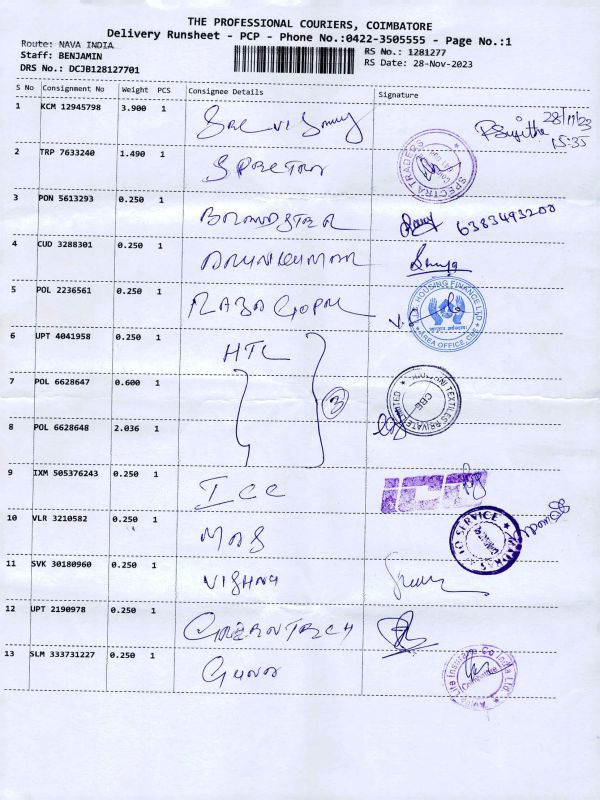 THE PROFESSIONAL COURIERS, COIMBATORE
Delivery Runsheet - PCP - Phone No.:0422-3505555 - Page No.:1
Route: NAVA INDIA
Staff: BENJAMIN
DRS No.: DCJB128127701
RS No.: 1281277
RS Date: 28-Nov-2023
S No Consignment No Weight PCS Consignee Details Signature
1 KCM 12945798 3.900 1 28/11/23
15:35
2 TRP 7633240 1.490 1 SPECTRA TRADERS
3 PON 5613293 0.250 1 6383493200
4 CUD 3288301 0.250 1 ARUNKUMAR
5 POL 2236561 0.250 1 HOUSING FINANCE LTD AREA OFFICE, CBE
6 UPT 4041958 0.250 1 HTL
7 POL 6628647 0.600 1 3 TEXTILES PRIVATE LIMITED CBE
8 POL 6628648 2.036 1
9 IXM 505376243 0.250 1 ICC
10 VLR 3210582 0.250 1 SERVICE
11 SVK 30180960 0.250 1 VISHNU
12 UPT 2190978 0.250 1
13 SLM 333731227 0.250 1 Life Insurance Co India Ltd Coimbatore